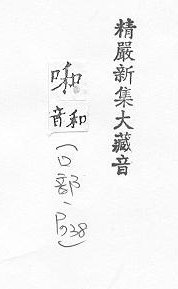 精嚴新集大藏音
啝
音和
(口部、P38)